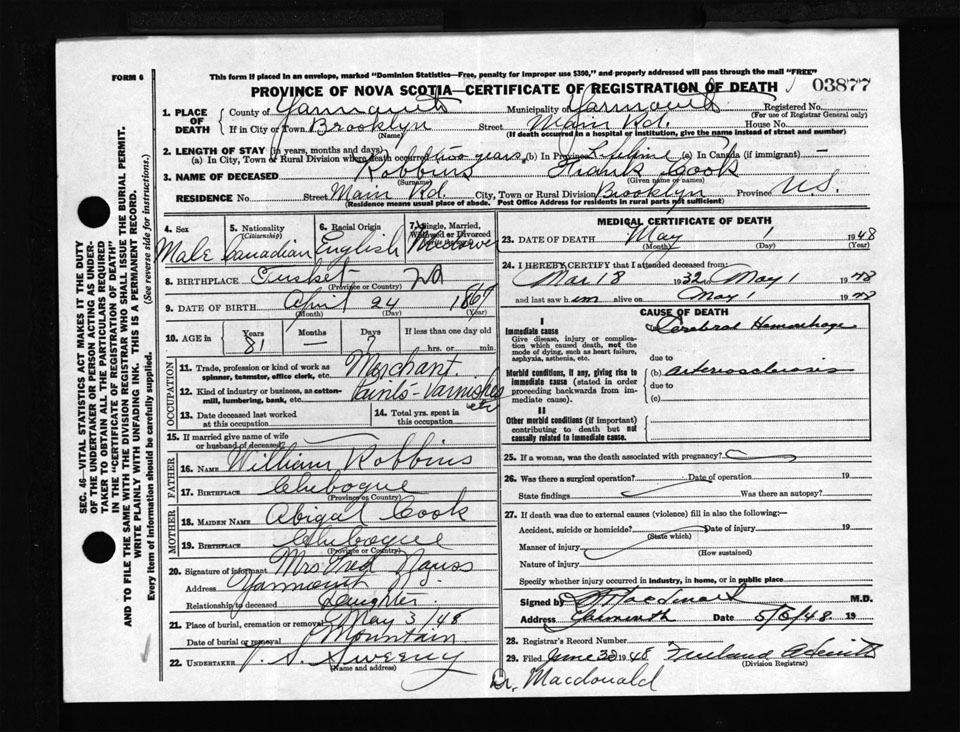 FORM 6
This form if placed in an envelope, marked "Dominion Statistics—Free, penalty for improper use $300," and properly addressed will pass through the mail "FREE"
PROVINCE OF NOVA SCOTIA—CERTIFICATE OF REGISTRATION OF DEATH 03877
SEC. 46—VITAL STATISTICS ACT MAKES IT THE DUTY
OF THE UNDERTAKER OR PERSON ACTING AS UNDER-
TAKER TO OBTAIN ALL THE PARTICULARS REQUIRED
IN THE "CERTIFICATE OF REGISTRATION OF DEATH"
AND TO FILE THE SAME WITH THE DIVISION REGISTRAR WHO SHALL ISSUE THE BURIAL PERMIT.
WRITE PLAINLY WITH UNFADING INK. THIS IS A PERMANENT RECORD.
Every item of information should be carefully supplied. (See reverse side for instructions.)
1. PLACE OF DEATH
County of Yarmouth Municipality of Yarmouth Registered No.
(For use of Registrar General only)
If in City or Town Brooklyn Street Main Rd. House No.
(Name) (If death occurred in a hospital or institution, give the name instead of street and number)
2. LENGTH OF STAY (in years, months and days)
(a) In City, Town or Rural Division where death occurred two years (b) In Province Lifetime (c) In Canada (if immigrant) —
3. NAME OF DECEASED Robbins Frank Cook
(Surname) (Given name or names)
RESIDENCE No. Street Main Rd. City, Town or Rural Division Brooklyn Province N.S.
(Residence means usual place of abode. Post Office Address for residents in rural parts not sufficient)
4. Sex 5. Nationality (Citizenship) 6. Racial Origin 7. Single, Married, Widowed or Divorced
Male Canadian English Widower
8. BIRTHPLACE Tusket NS
(Province or Country)
9. DATE OF BIRTH April 24 1867
(Month) (Day) (Year)
10. AGE in Years Months Days If less than one day old
81 — 7 hrs. or min.
OCCUPATION
11. Trade, profession or kind of work as spinner, teamster, office clerk, etc. Merchant
12. Kind of industry or business, as cotton-mill, lumbering, bank, etc. Paints-Varnishes etc
13. Date deceased last worked at this occupation
14. Total yrs. spent in this occupation
15. If married give name of wife or husband of deceased —
FATHER
16. Name William Robbins
17. Birthplace Chebogue
(Province or Country)
MOTHER
18. Maiden Name Abigal Cook
19. Birthplace Chebogue
(Province or Country)
20. Signature of informant Mrs Fred
Address Yarmouth
Relationship to deceased Daughter
21. Place of burial, cremation or removal May 3/48
Date of burial or removal Mountain
22. Undertaker V. S. Sweeny
(Name and address)
MEDICAL CERTIFICATE OF DEATH
23. DATE OF DEATH May 1 1948
(Month) (Day) (Year)
24. I HEREBY CERTIFY that I attended deceased from:
Mar 18 1932 to May 1 1948
and last saw him alive on May 1 1948
CAUSE OF DEATH
I
Immediate cause Cerebral Hemorrhage
Give disease, injury or complication which caused death, not the mode of dying, such as heart failure, asphyxia, asthenia, etc.
due to
Morbid conditions, if any, giving rise to immediate cause (stated in order proceeding backwards from immediate cause).
(b) arteriosclerosis
due to
(c)
II
Other morbid conditions (if important) contributing to death but not causally related to immediate cause.
25. If a woman, was the death associated with pregnancy?
26. Was there a surgical operation? Date of operation 19
State findings Was there an autopsy?
27. If death was due to external causes (violence) fill in also the following:—
Accident, suicide or homicide? Date of injury 19
(State which)
Manner of injury
(How sustained)
Nature of injury
Specify whether injury occurred in industry, in home, or in public place
Signed by Macdonald M.D.
Address Yarmouth Date 5/5/48 19
28. Registrar's Record Number
29. Filed June 1948
(Division Registrar)
Dr. Macdonald